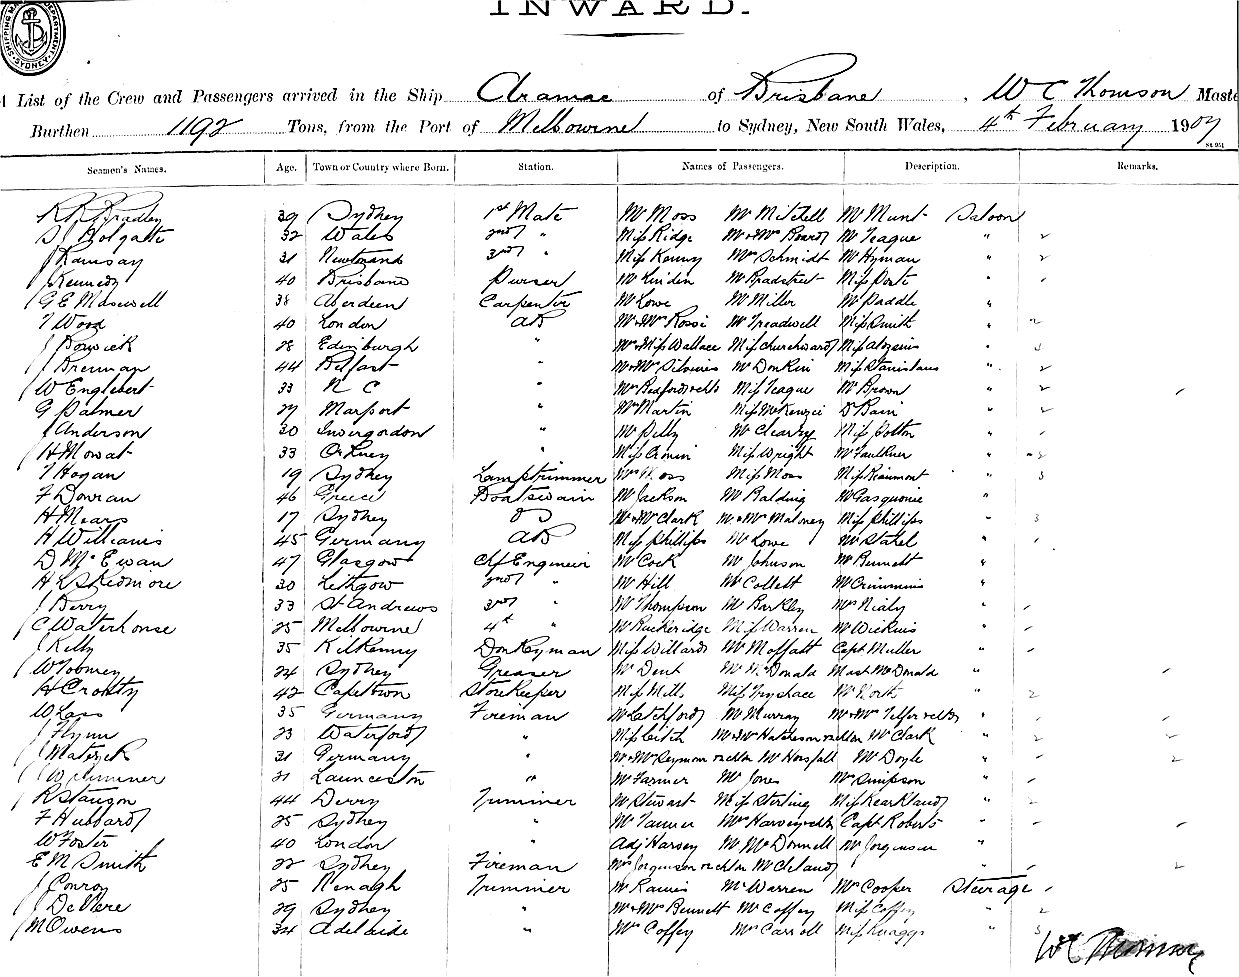 INWARD.
SHIPPING MASTER'S DEPARTMENT SYDNEY
A List of the Crew and Passengers arrived in the Ship Aramac of Brisbane, W C Thomson Maste
Burthen 1192 Tons, from the Port of Melbourne to Sydney, New South Wales, 4th February 1907
Seamen's Names. Age. Town or Country where Born. Station. Names of Passengers. Description. Remarks.
Bradley 39 Sydney 1st Mate Mr Moss Mr Mitchell Mr Munt Saloon
S Holgate 32 Wales 2nd " Miss Ridge Mr & Mrs Mr Teague " 2
J Ramsay 31 3rd " Miss Kenny Mrs Schmidt Mr Hyman " 2
J Kennedy 40 Brisbane Purser Mr Linden Mr Bradstreet Miss "
G E Maxwell 38 Aberdeen Carpenter Mr Lowe Mr Miller Mr Paddle "
T Wood 40 London AB Mr & Mrs Rossi Mr Treadwell Miss Smith "
J Borwick 28 Edinburgh " Mr & Miss Wallace Miss Churchward Miss Aloysius "
J Brennan 44 Belfast " Mr & Mrs Mr Donkin Miss Stanislaus " 2
W Englebert 33 N C " Mrs Bedford & chld Miss Teague Mr Brown "
G Palmer 27 Maryport " Mr Martin Miss McKenzie Dr Bain " 2
J Anderson 30 Invergordon " Mr Pelly Mr Clearey Miss Cotton "
H Mowat 33 Orkney " Miss Cronin Miss Wright Mr Faulkner "
T Hogan 19 Sydney Lamptrimmer Mrs Moss Miss Moss Miss Beaumont " 3
F Dowran 46 Greece Boatswain Mr Jackson Mr Balding Mr Gasquoine "
H Mears 17 Sydney OS Mr & Mr Clark Mr & Mrs Maloney Miss Phillips " 3
H Williams 45 Germany AB Miss Phillips Mr Lowe Mr Stahel "
D McEwan 47 Glasgow Chf Engineer Mr Cock Mr Johnson Mr Bennett "
H L Skidmore 30 Lithgow 2nd " Mr Hill Mr Collett Mr Crimmins "
J Berry 33 St Andrews 3rd " Mr Thompson Mr Barkley Mrs Nialy "
C Waterhouse 25 Melbourne 4th " Mr Ruckeridge Miss Warren Mr Wickins "
J Kelly 35 Kilkenny Donkeyman Miss Willard Mr Moffatt Capt Muller "
W Toomey 24 Sydney Greaser Mr Dent Mr McDonald Mast McDonald "
H Cronty 42 Capetown Storekeeper Miss Mills Miss Mr North " 2
W 35 Germany Fireman Mr Latchford Mr Murray Mr & Mrs Telfer & chld "
J Flynn 23 Waterford " Miss Leith Mr & Mr Hutcheson & chldn Mr Clark "
J 31 Germany " Mr & Mr Seymour & chldn Mr Horsfall Mr Doyle "
W Sumner 21 Launceston " Mr Farmer Mr Jones Mr Simpson "
R 44 Derry Trimmer Mr Stewart Miss Sterling Miss "
F Hubbard 25 Sydney " Mr Tanner Mrs Harvey & chldn Capt Roberts "
W Foster 40 London " Adj Harvey Mr McDonnell Mr Jorgensen "
E M Smith 22 Sydney Fireman Mrs Jorgensen & chldn Mr Cleland "
J Conroy 25 Nenagh Trimmer Mr Rains Mr Warren Mrs Cooper Steerage
J DeVere 29 Sydney " Mr & Mrs Bennett Mr Coffey Miss Coffey " 2
M Owens 34 Adelaide " Mrs Coffey Mrs Carroll Miss Knaggs " 3
W C Thomson